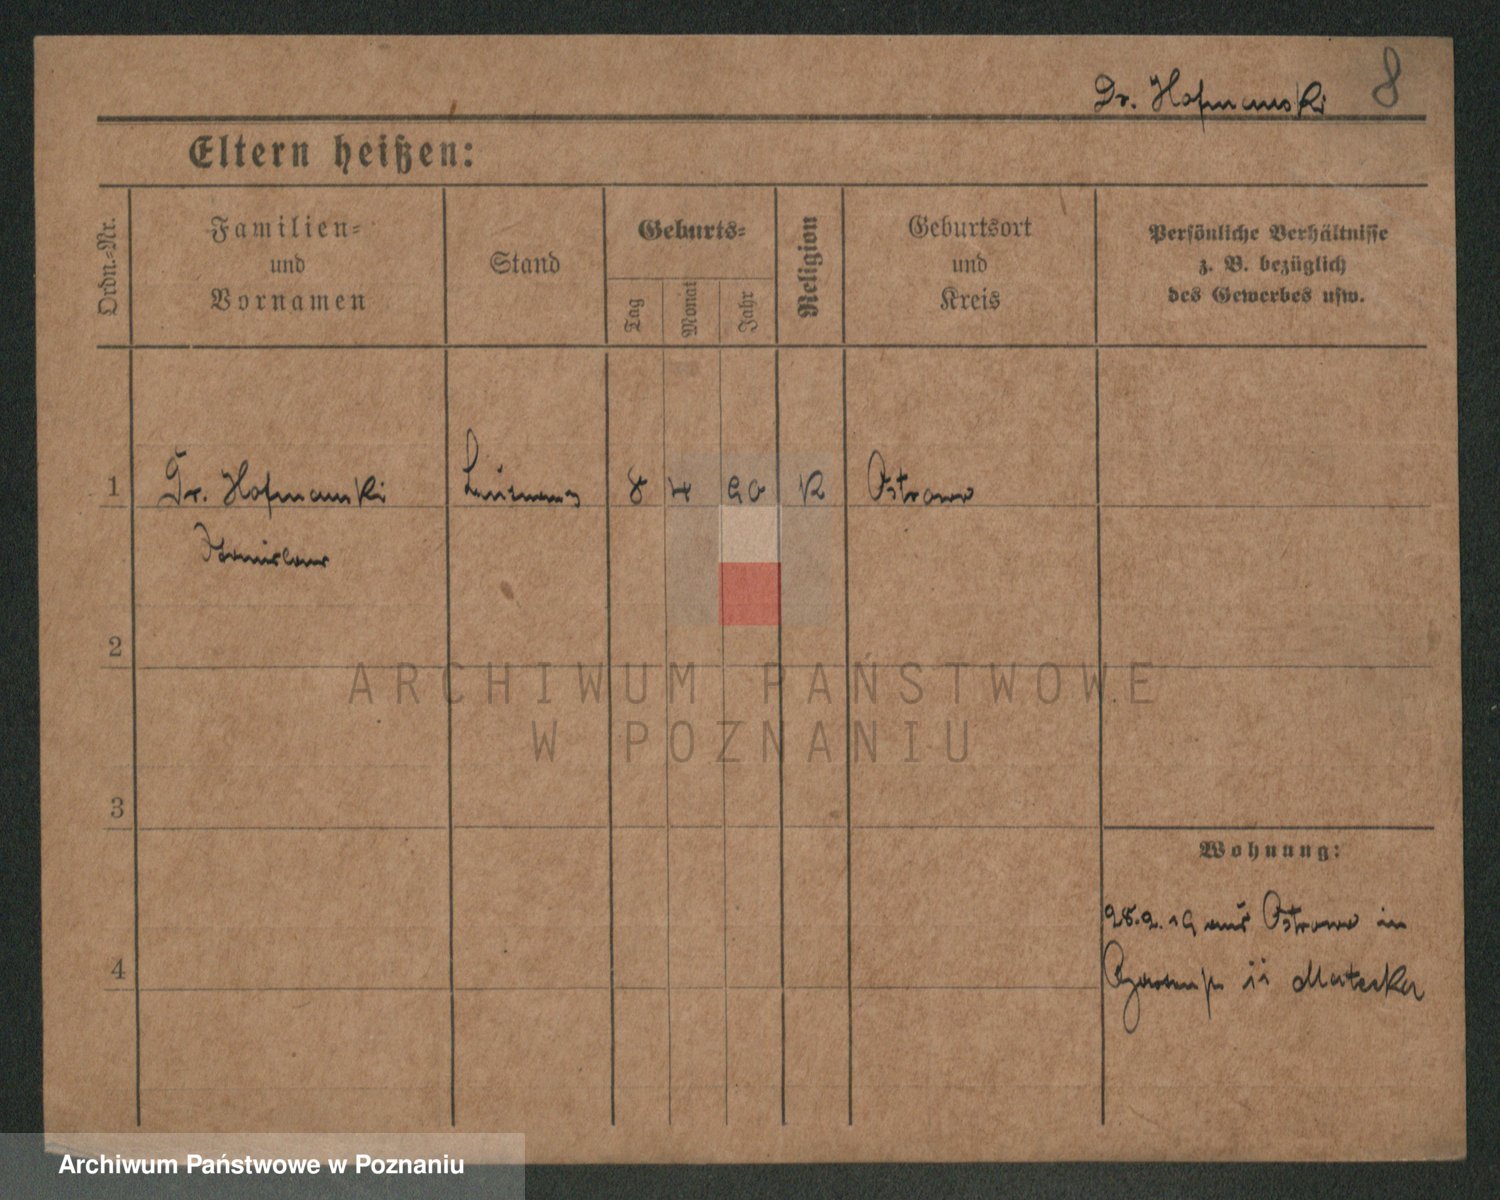 Dr. Hofmanski 8
Eltern heißen:
Ordn.-Nr.
Familien-
und
Vornamen
Stand
Geburts-
Tag
Monat
Jahr
Religion
Geburtsort
und
Kreis
Persönliche Verhältnisse
z. B. bezüglich
des Gewerbes usw.
1 Dr. Hofmanski 8 4 90 K Ostrowo
Stanislaus
2
3
4
Wohnung:
28.2.19 aus Ostrowo in
ii Matecka
ARCHIWUM PAŃSTWOWE
W POZNANIU
Archiwum Państwowe w Poznaniu